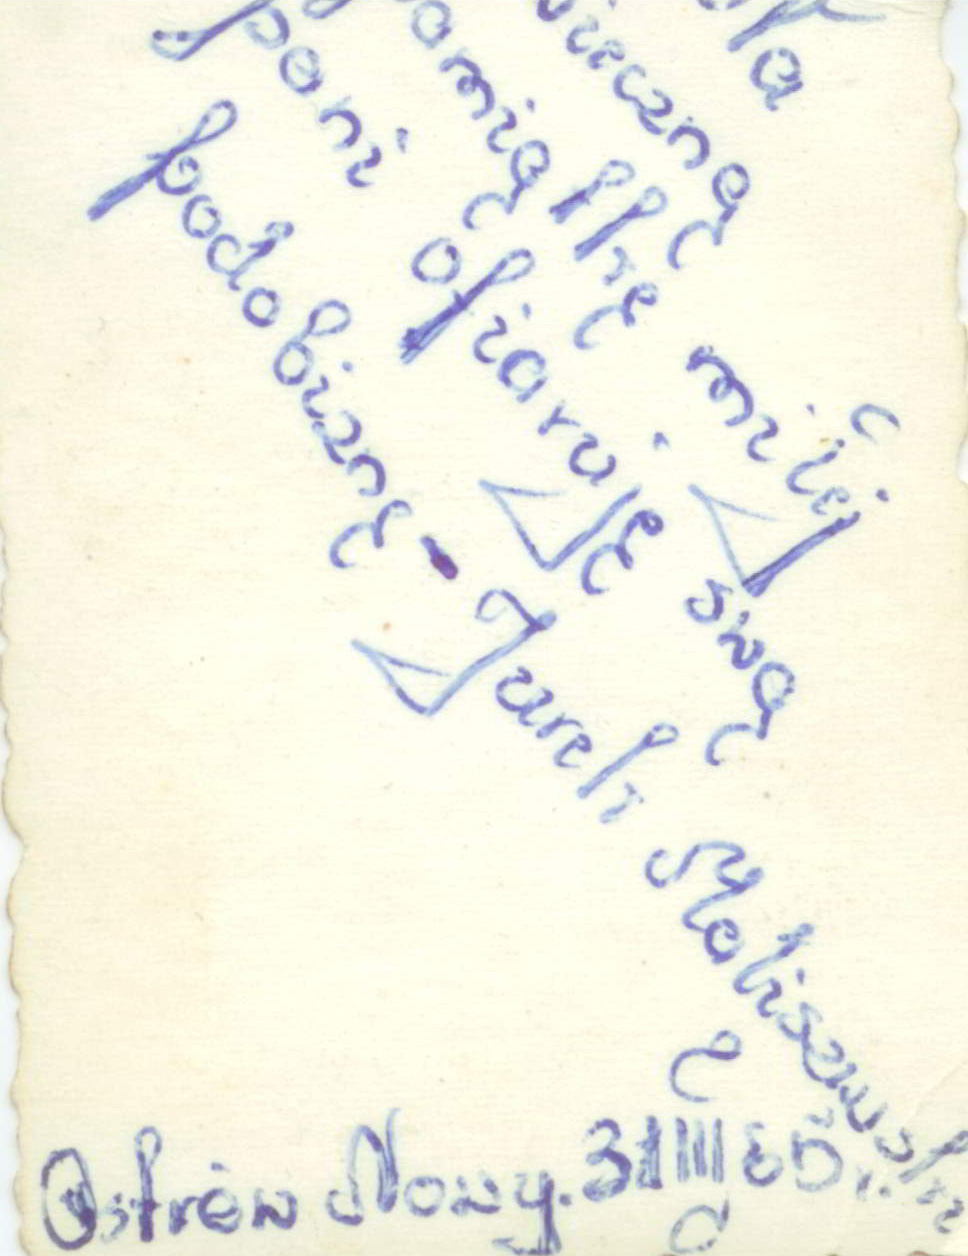 wieczną
pamiątkę miłej
pani ofiaruję swą
podobiznę - Jurek
Ostrów Nowy. 31 III 65 r.